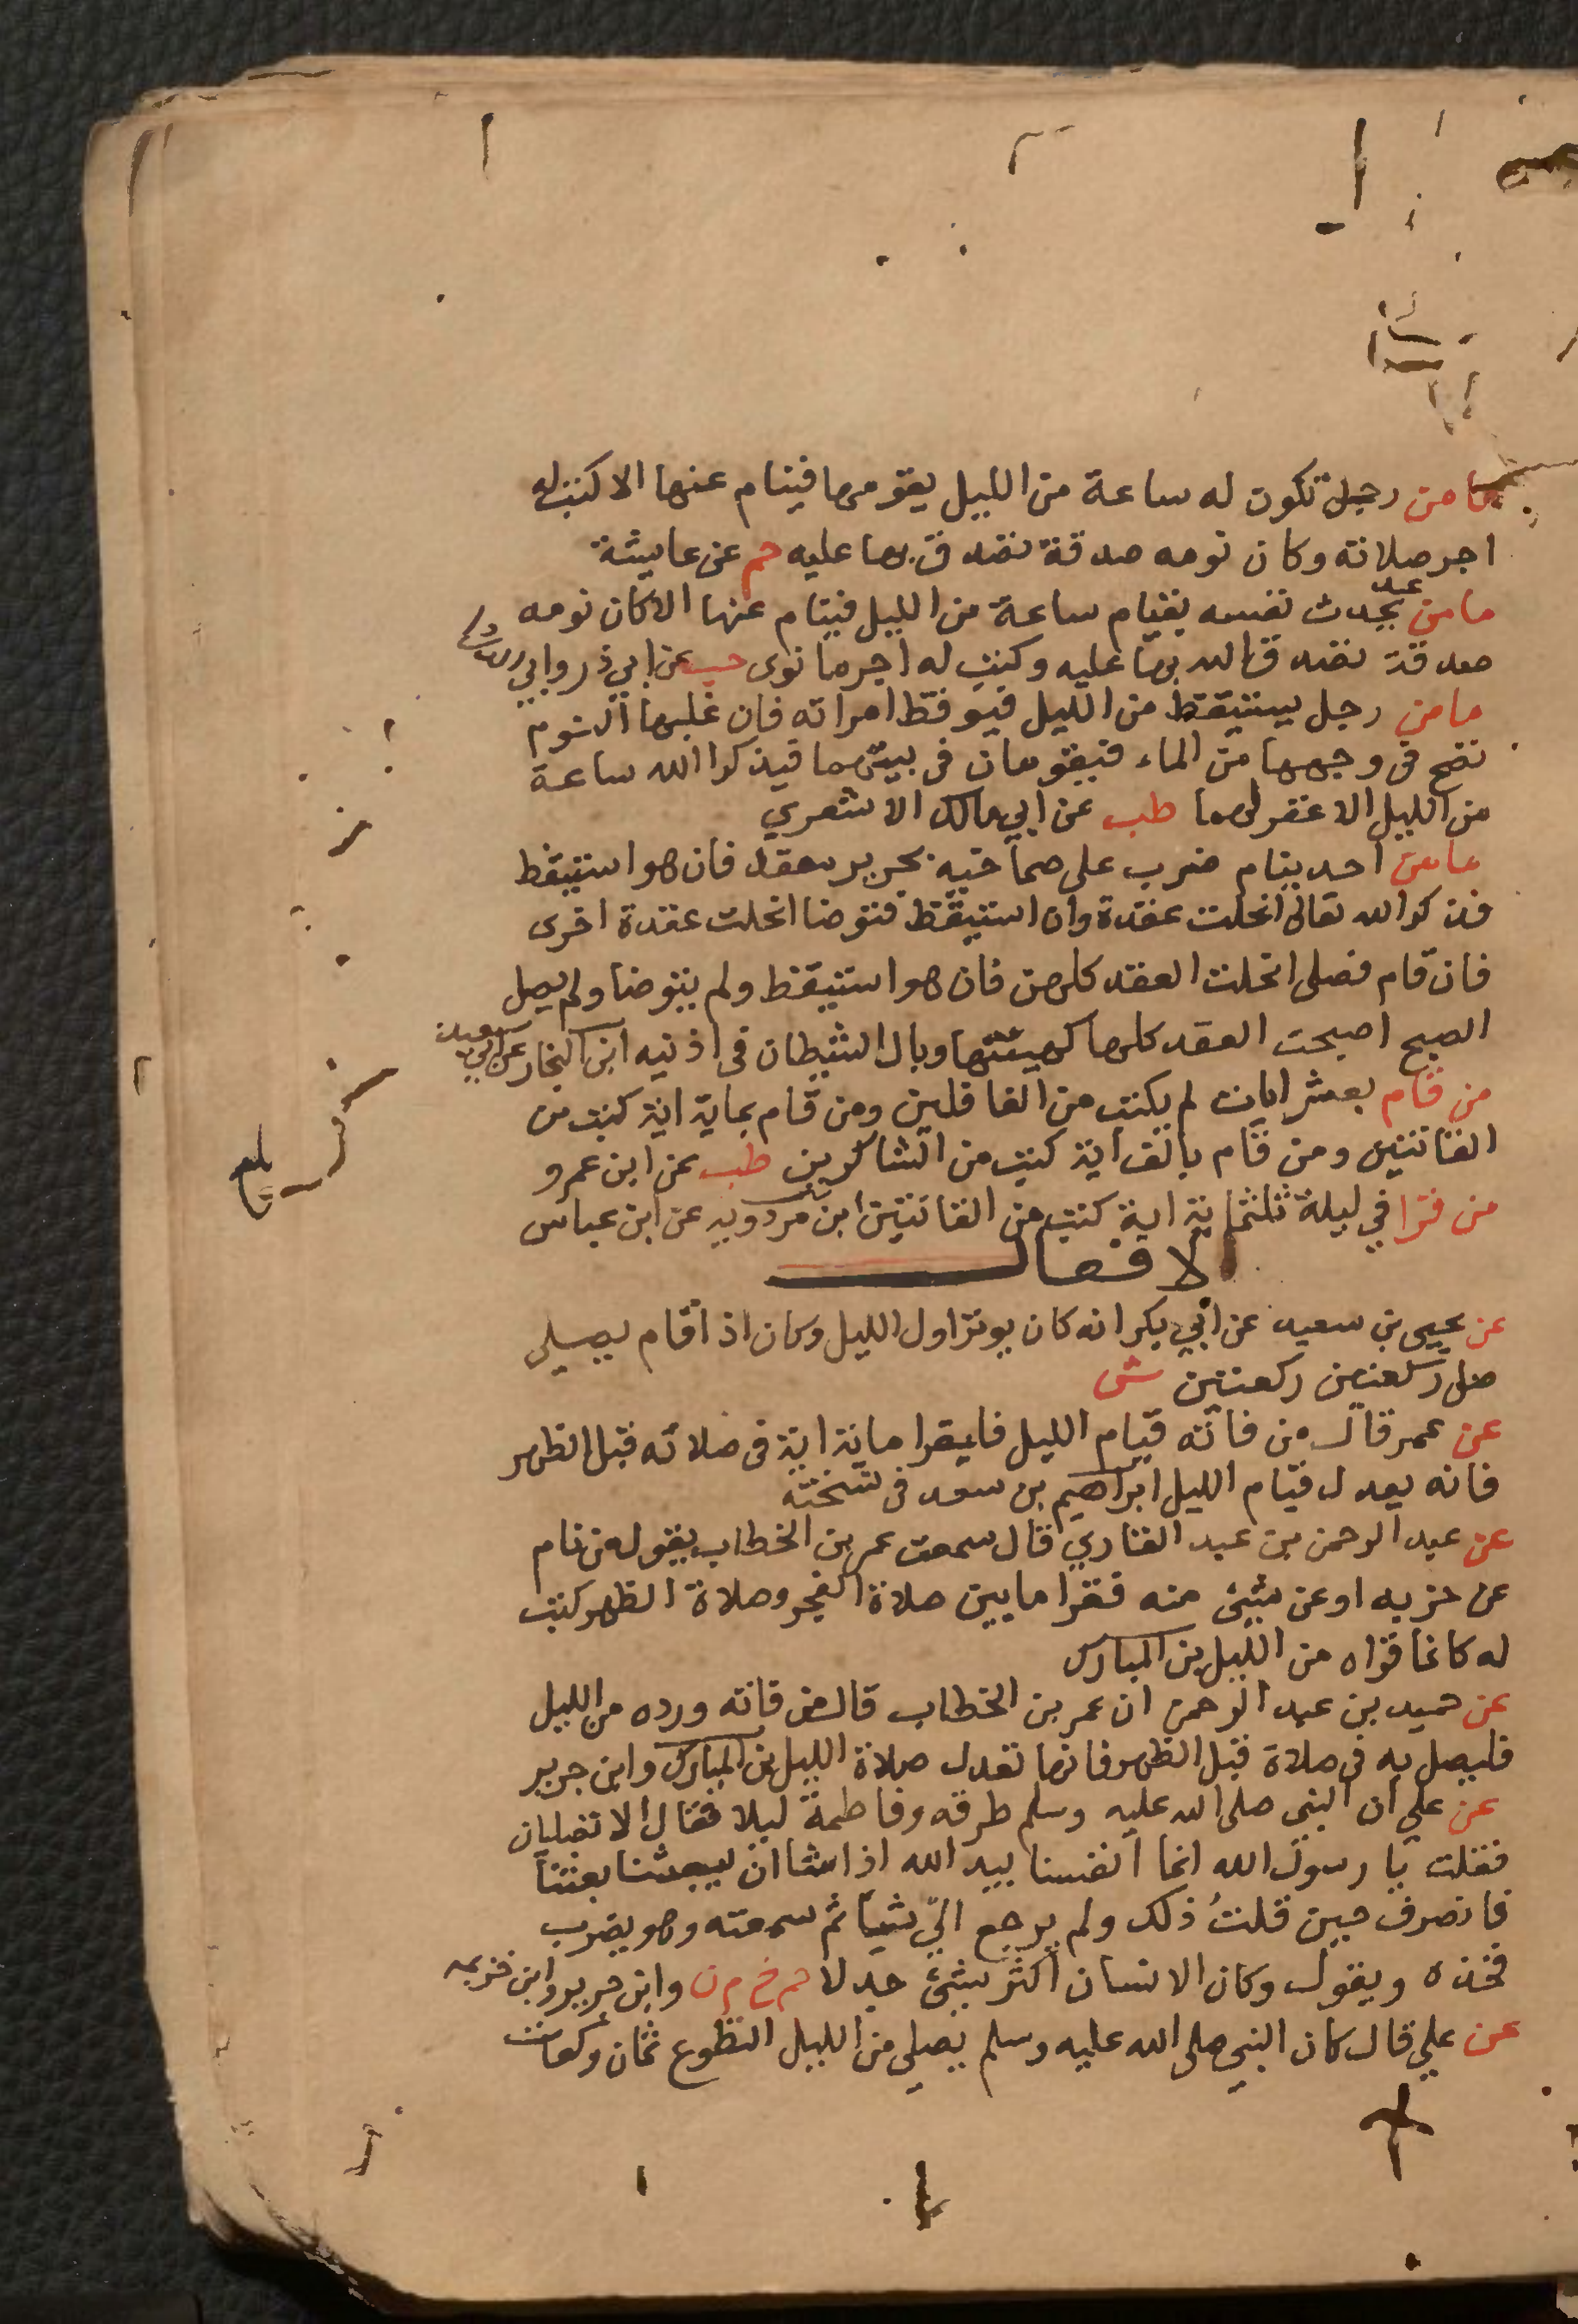 ما من رجل تكون له ساعة من الليل يقومها فينام عنها الا كتب له
اجر صلاته وكان نومه صدقة تصدق بها عليه حم عن عايشة
ما من عبد يحدث نفسه بقيام ساعة من الليل فينام عنها الا كان نومه
صدقة تصدق الله بها عليه وكتب له اجر ما نوى حب عن ابي ذر وابي الدرداء
ما من رجل يستيقظ من الليل فيوقظ امراته فان غلبها النوم
نضح في وجهها من الماء فيقومان في بيتهما فيذكرا الله ساعة
من الليل الا غفر لهما طب عن ابي مالك الاشعري
ما من احد ينام ضرب على صماخيه بجرير معقد فان هو استيقظ
فذكر الله تعالى انحلت عقدة وان استيقظ فتوضا انحلت عقدة اخرى
فان قام فصلى انحلت العقد كلهن فان هو استيقظ ولم يتوضا ولم يصل
الصبح اصبحت العقد كلها كهيئتها وبال الشيطان في اذنيه ابن النجار عن ابي سعيد
من قام بعشر ايات لم يكتب من الغافلين ومن قام بماية اية كتب من
القانتين ومن قام بالف اية كتب من الشاكرين طب عن ابن عمرو
من قرا في ليلة ثلثماية اية كتب من القانتين ابن مردويه عن ابن عباس
الافعال
عن يحيى بن سعيد عن ابي بكر انه كان يوتر اول الليل وكان اذا قام يصلي
صلى ركعتين ركعتين ش
عن عمر قال من فاته قيام الليل فليقرا ماية اية في صلاته قبل الظهر
فانه يعدل قيام الليل ابراهيم بن سعد في نسخته
عن عبد الرحمن بن عبد القاري قال سمعت عمر بن الخطاب يقول من نام
عن حزبه او عن شيئ منه فقرا ما بين صلاة الفجر وصلاة الظهر كتب
له كانما قراه من الليل بن المبارك
عن حميد بن عبد الرحمن ان عمر بن الخطاب قال من فاته ورده من الليل
فليصل به في صلاة قبل الظهر فانها تعدل صلاة الليل بن المبارك وابن جرير
عن علي ان النبي صلى الله عليه وسلم طرقه وفاطمة ليلا فقال الا تصليان
فقلت يا رسول الله انما انفسنا بيد الله اذا شا ان يبعثنا بعثنا
فانصرف حين قلت ذلك ولم يرجع الي شيا ثم سمعته وهو يضرب
فخذه ويقول وكان الانسان اكثر شيئ جدلا حم خ م ن وابن جرير وابن خزيمه
عن علي قال كان النبي صلى الله عليه وسلم يصلي من الليل التطوع ثمان ركعات
بلغ